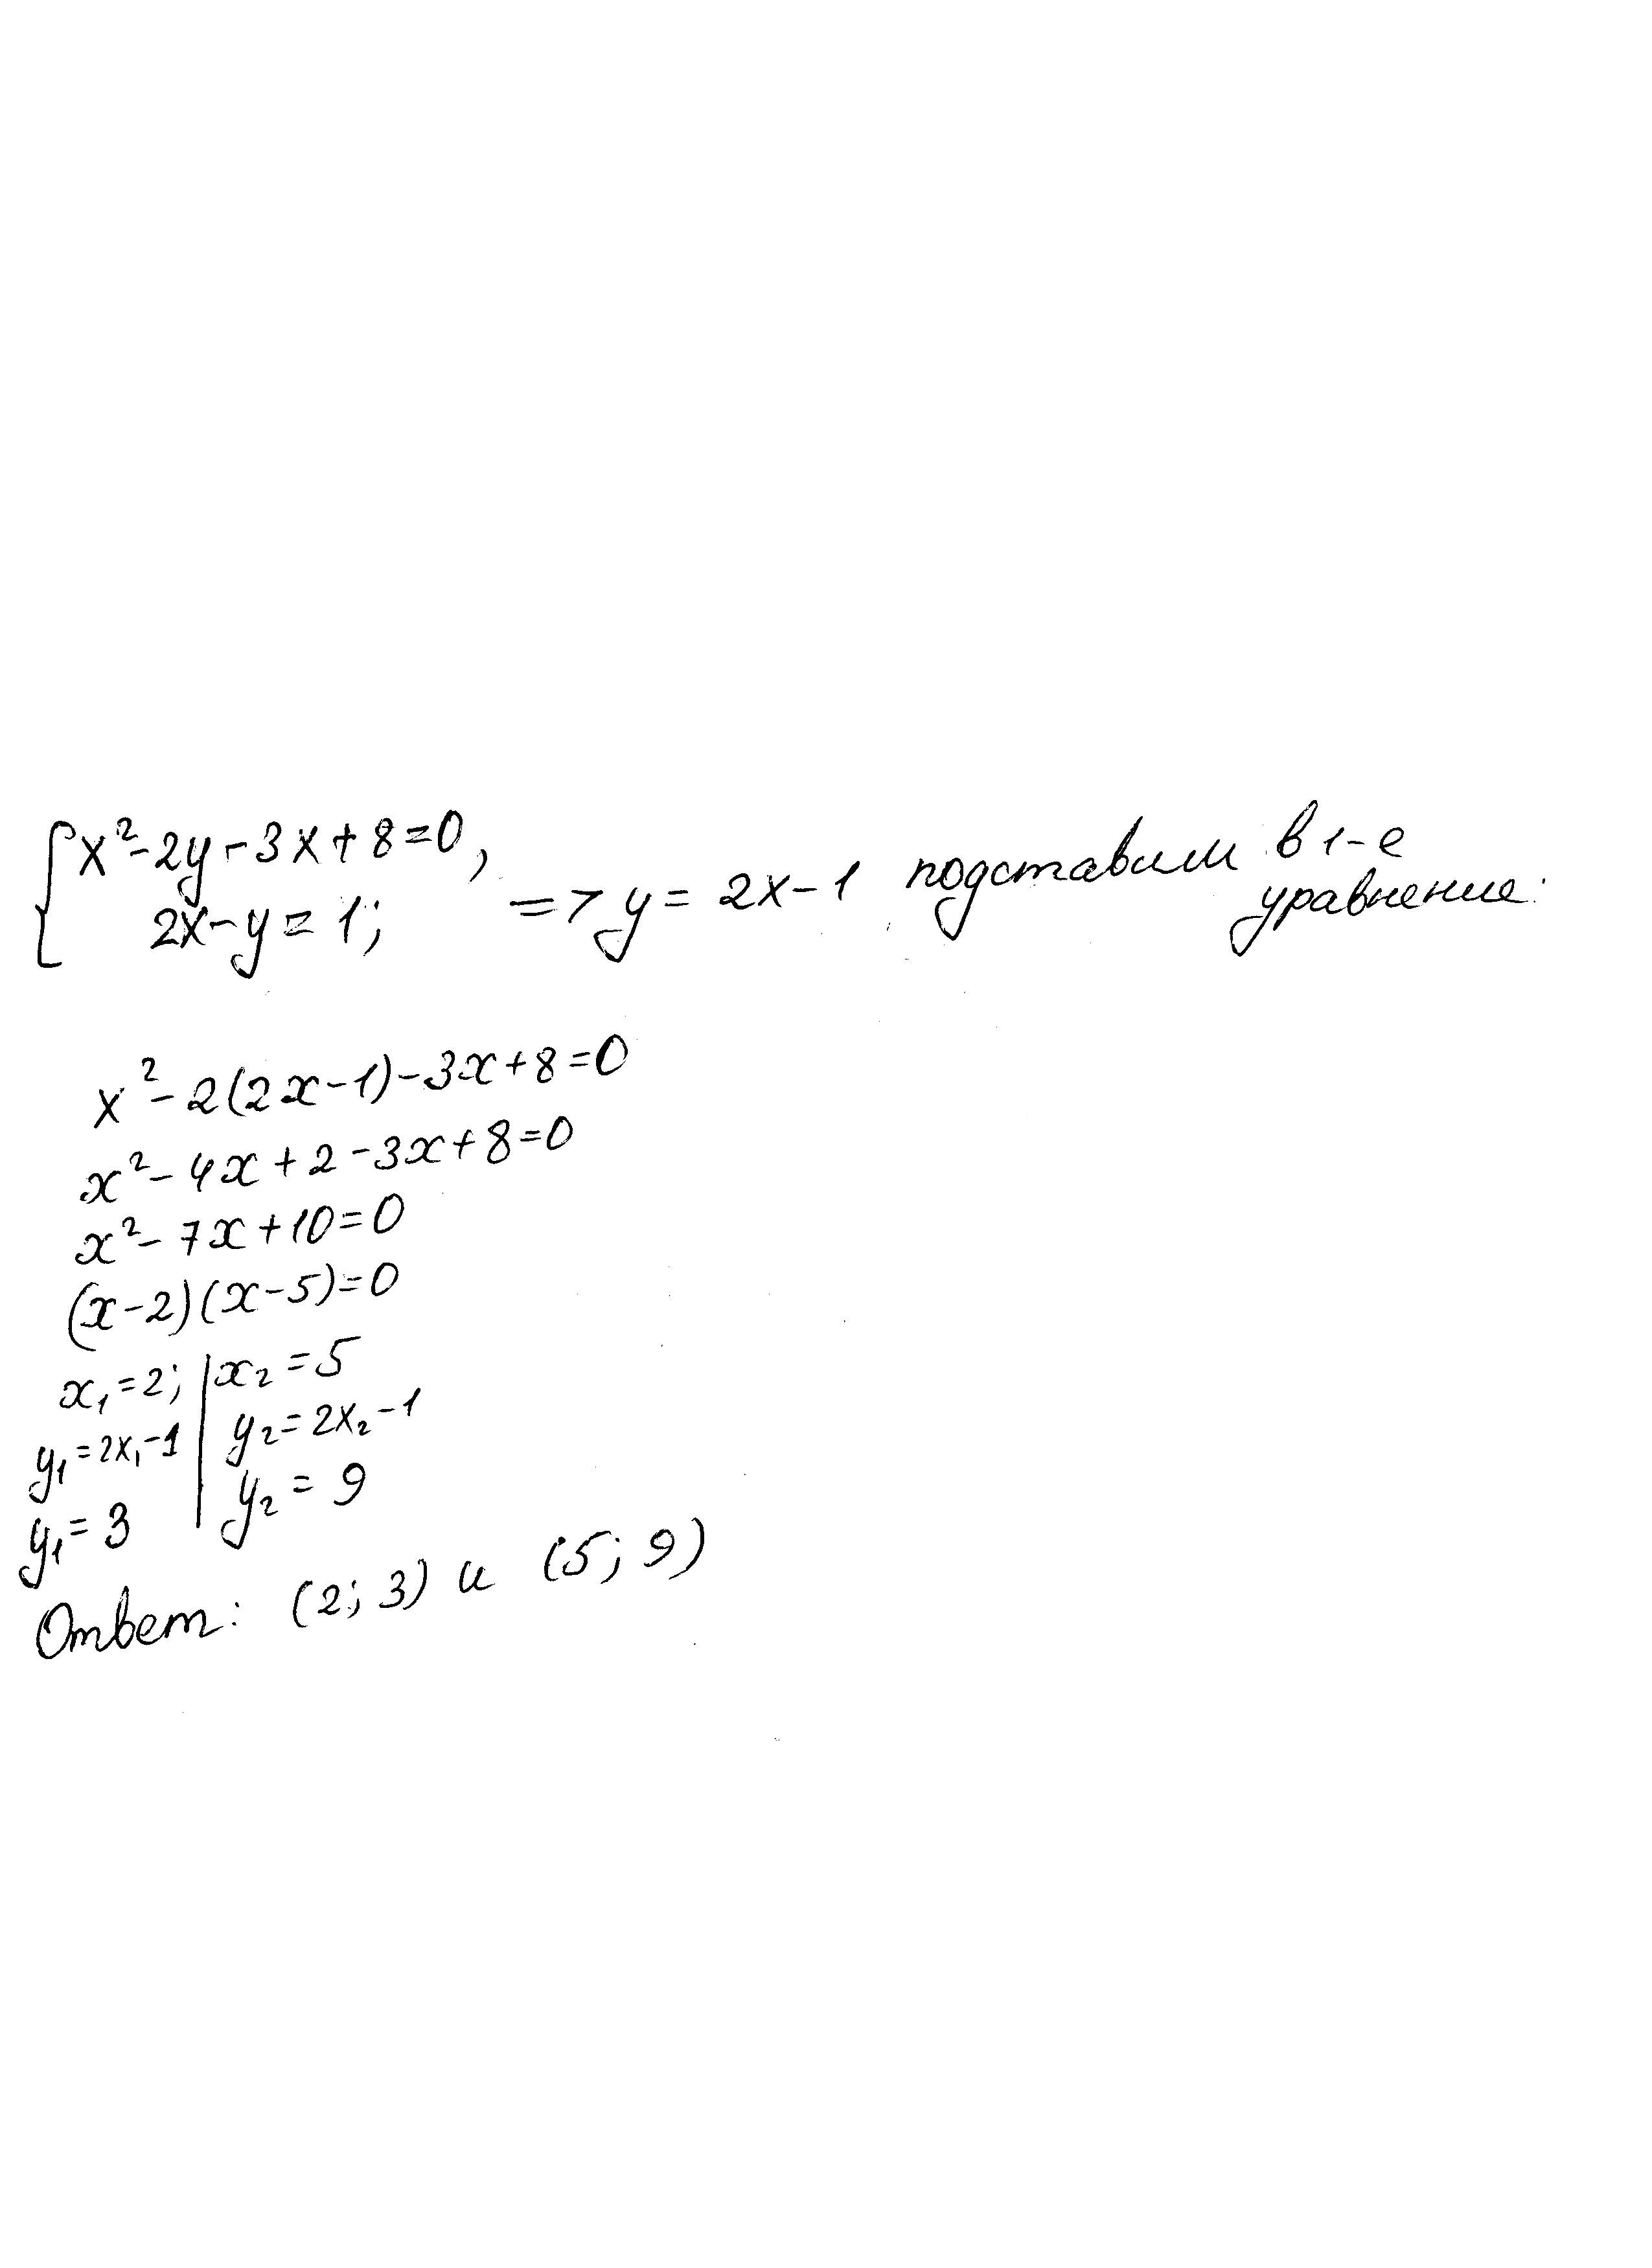 x²-2y-3x+8=0,
2x-y=1; => y=2x-1 подставим в 1-е
уравнение:
x²-2(2x-1)-3x+8=0
x²-4x+2-3x+8=0
x²-7x+10=0
(x-2)(x-5)=0
x₁=2; | x₂=5
y₁=2x₁-1 | y₂=2x₂-1
y₁=3 | y₂=9
Ответ: (2; 3) и (5; 9)